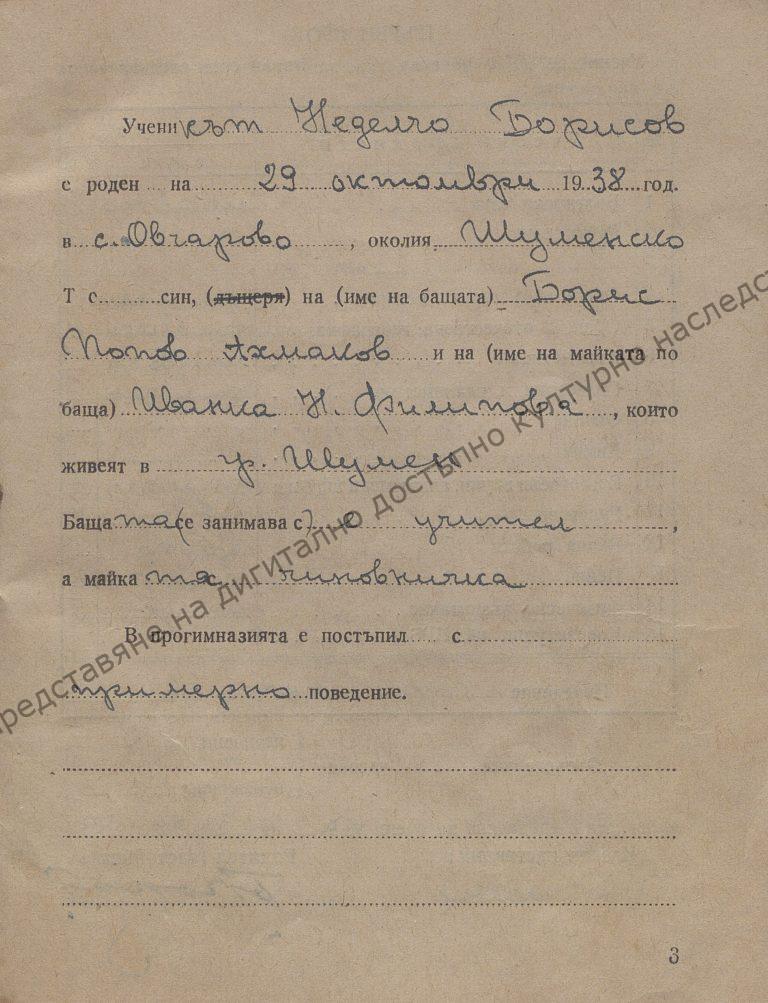 Ученикът Неделчо Борисов
е роден на 29 октомври 1938 год.
в с. Овчарово, околия Шуменско
Т е син, (дъщеря) на (име на бащата) Борис
Попов Ахмаков и на (име на майката по
баща) Иванка Н. Филипова, които
живеят в гр. Шумен
Бащата (се занимава с) е учител,
а майка та е чиновничка
В прогимназията е постъпил с
примерно поведение.
3
представяне на дигитално достъпно културно наследс